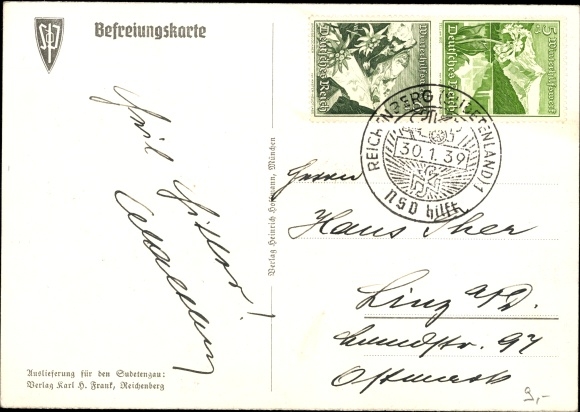 SdP
Befreiungskarte
Heil
Hitler!
Auslieferung für den Sudetengau:
Verlag Karl H. Frank, Reichenberg
Verlag Heinrich Hoffmann, München
Winterhilfswerk
Deutsches Reich
5
Winterhilfswerk
Deutsches Reich
REICHENBERG (SUDETENLAND) 1
30.1.39
NSD hilft
Herrn
Hans
Linz a/D.
97
Ostmark
9,-